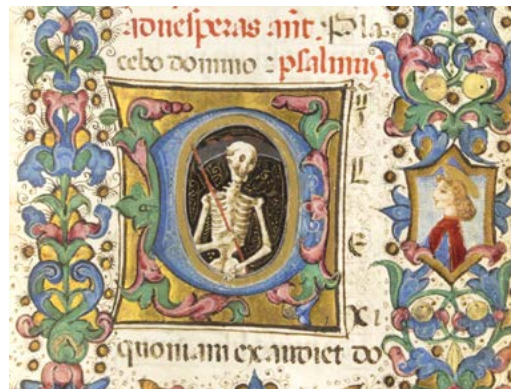 aduesperas añt. Pla
cebo domino : psalmus.
D
L
E
XI
quoniam exaudiet do